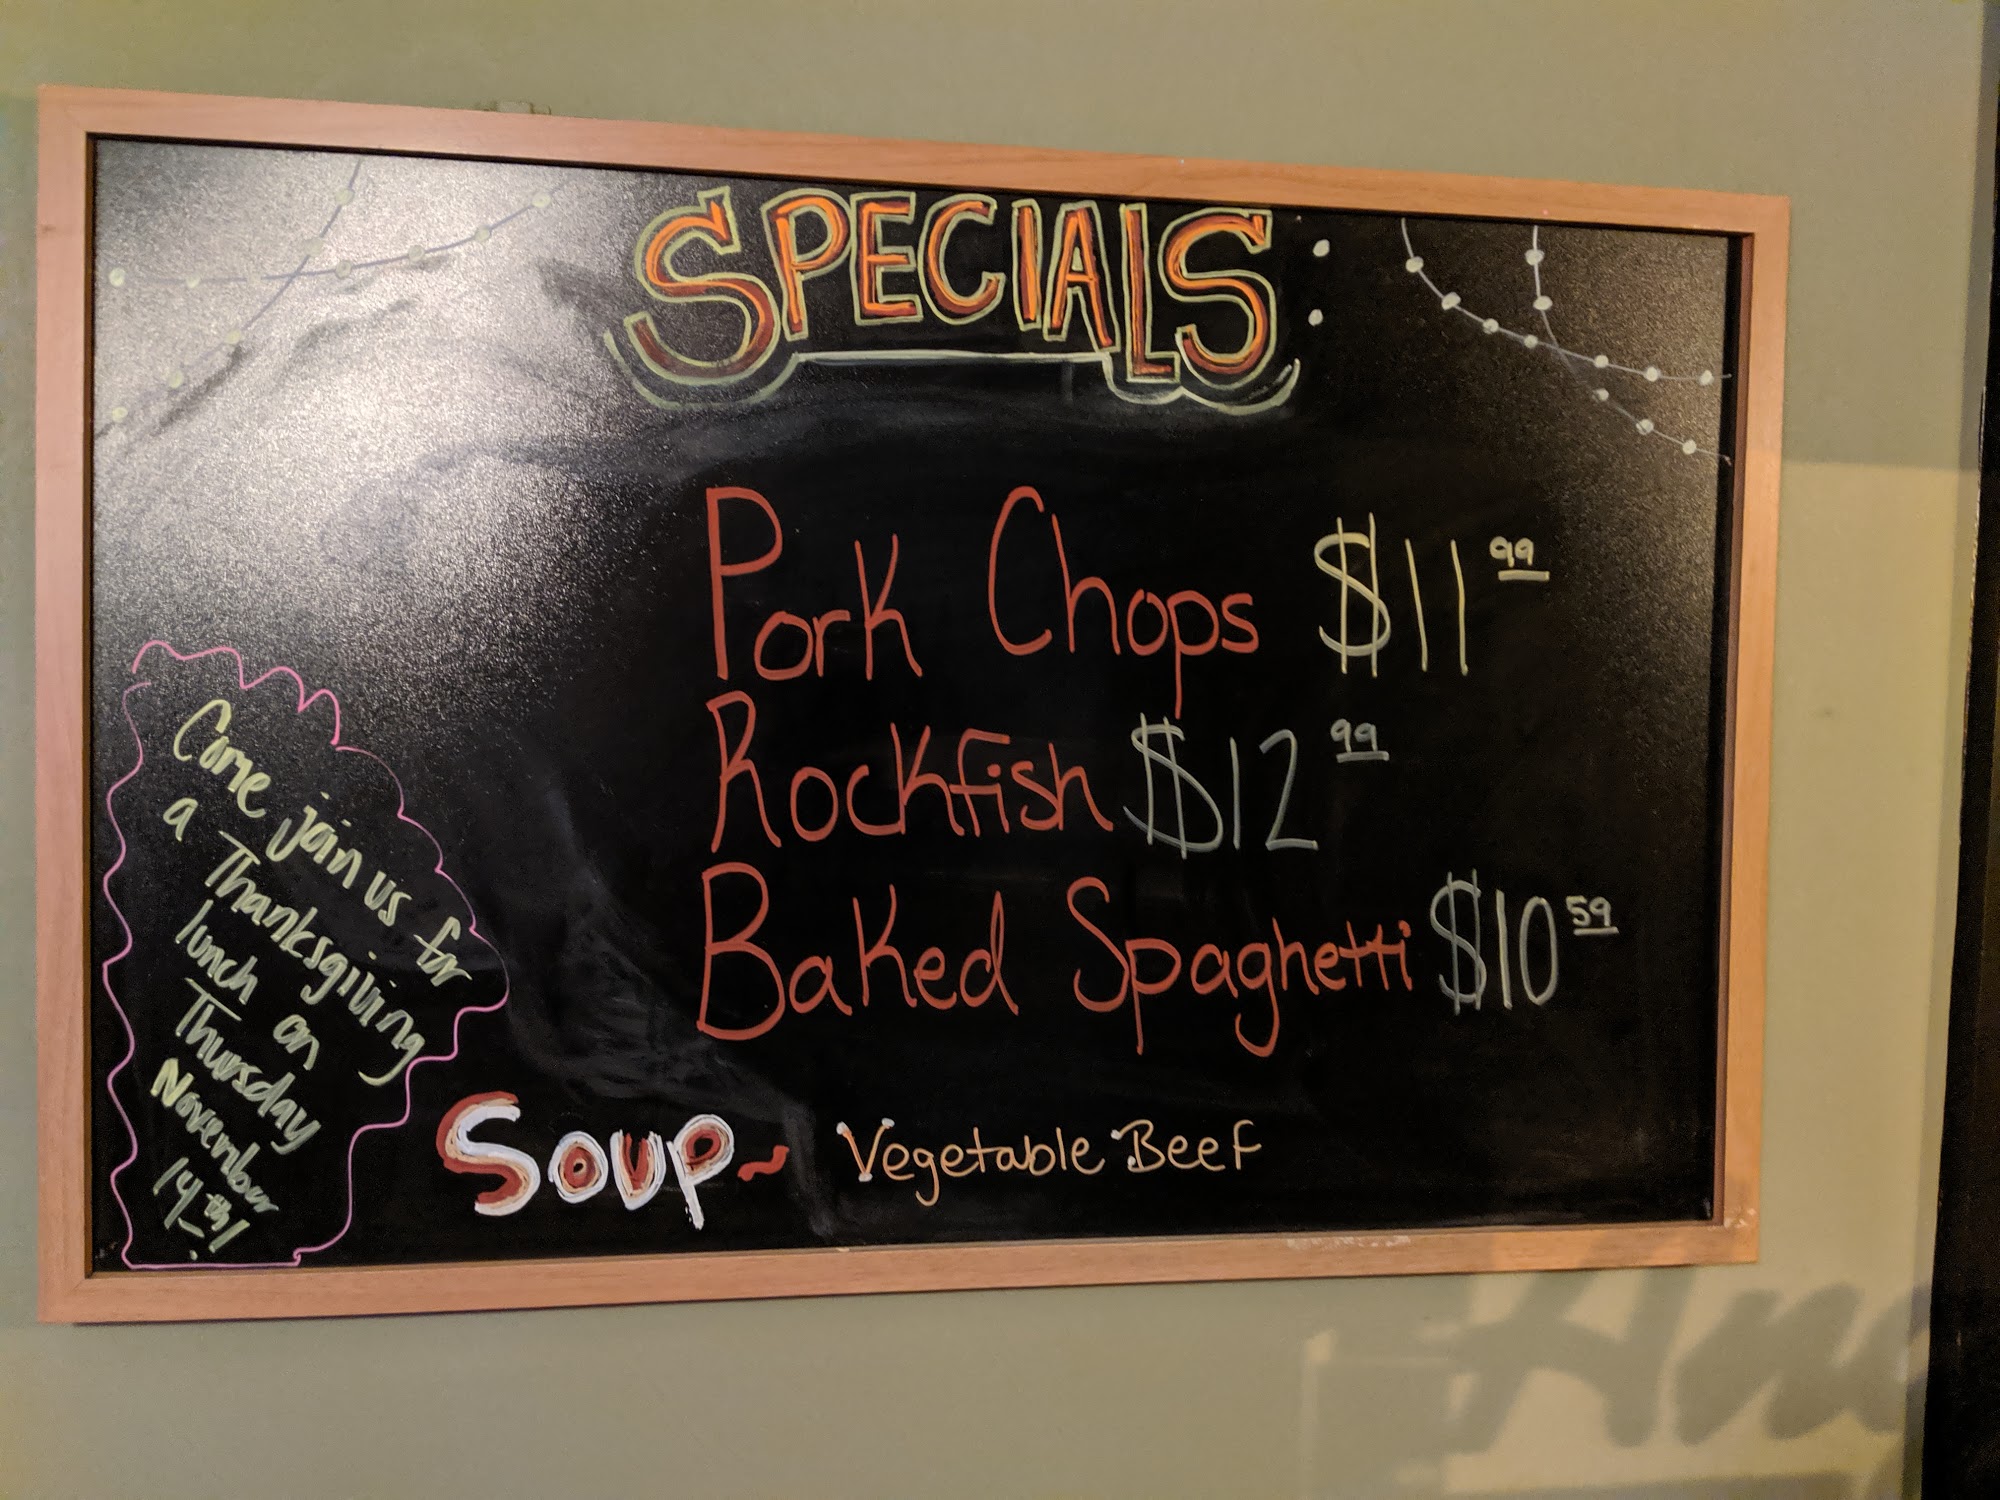 SPECIALS:
Pork Chops $11 99
Rockfish $12 99
Baked Spaghetti $10 59
Soup~ Vegetable Beef
Come join us for
a Thanksgiving
lunch on
Thursday
November
14th!